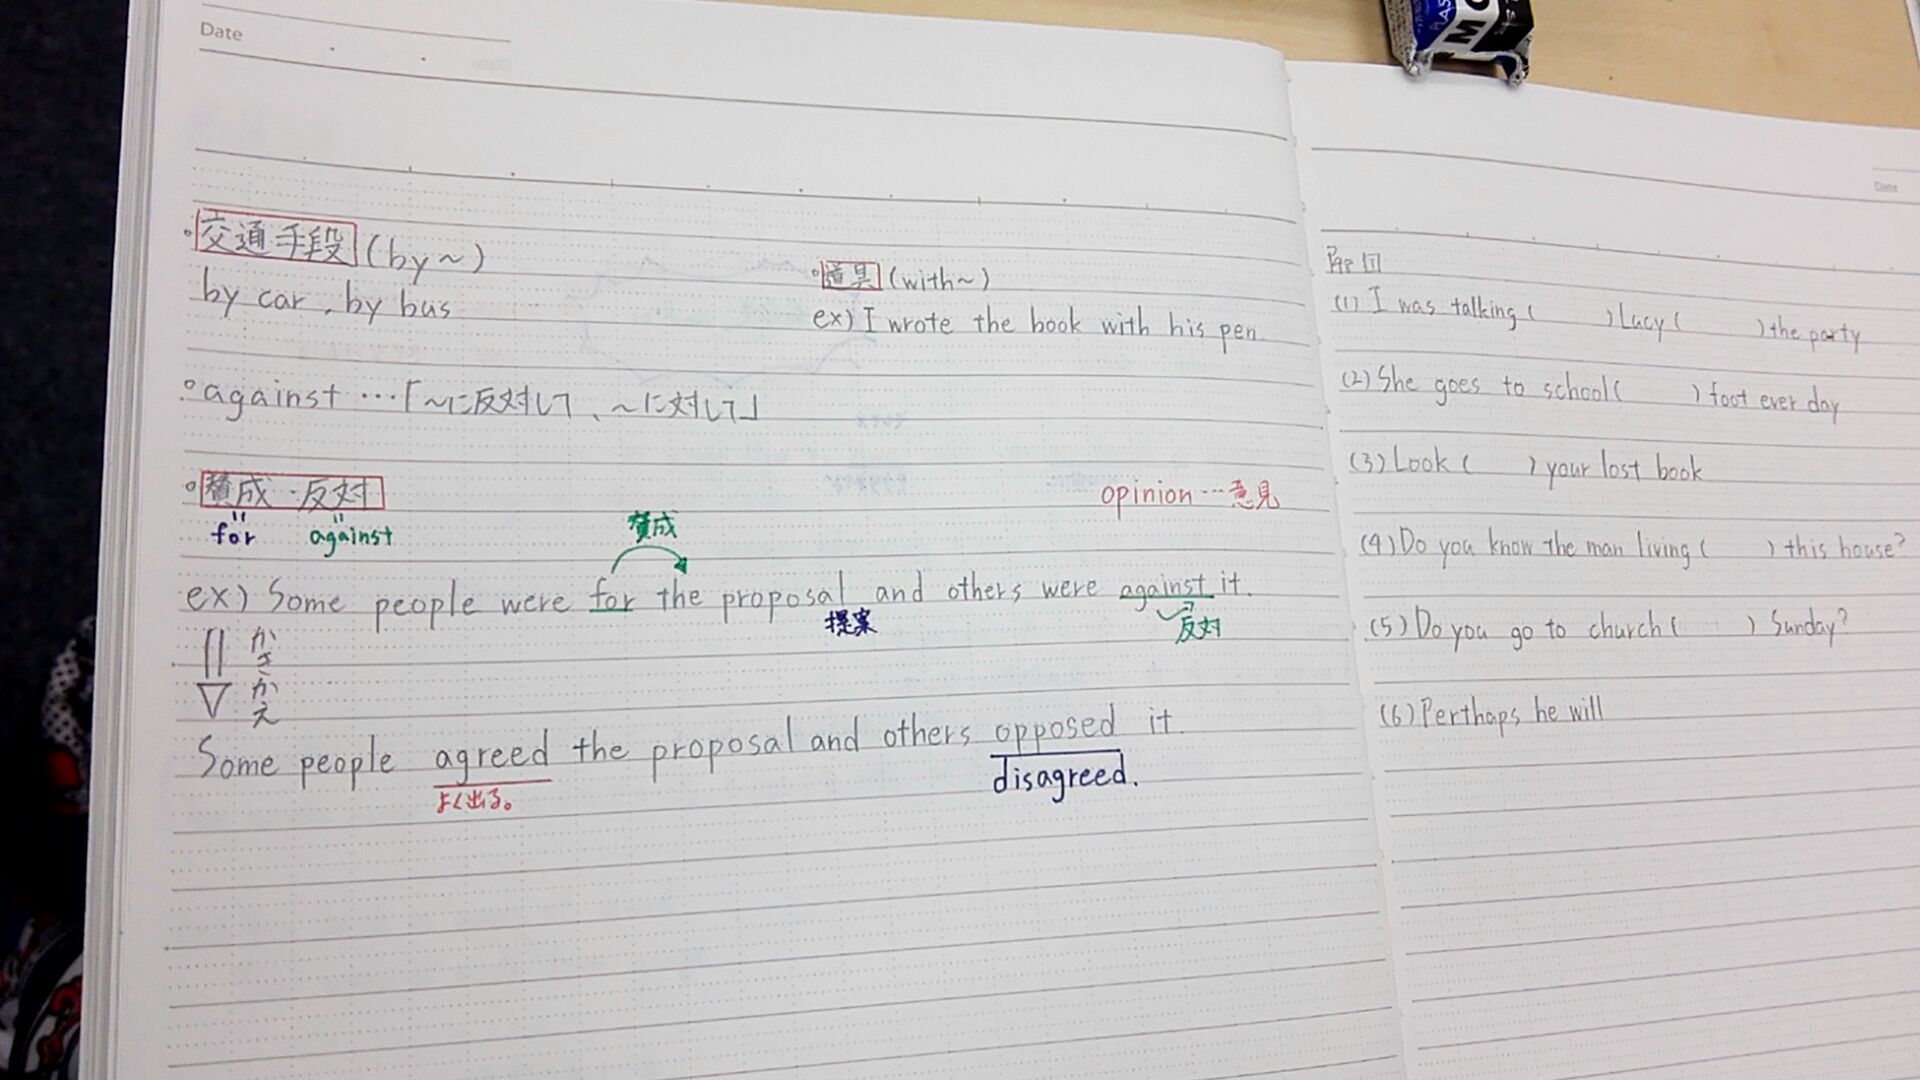 Date
交通手段(by~)
by car, by bus
道具(with~)
ex) I wrote the book with his pen.
against …「~に反対して、~に対して」
賛成・反対
for against
opinion…意見
賛成
ex) Some people were for the proposal and others were against it.
提案
反対
かきかえ
Some people agreed the proposal and others opposed it.
よく出る。
disagreed.
Date
(1) I was talking ( ) Lucy ( ) the party
(2) She goes to school ( ) foot ever day
(3) Look ( ) your lost book
(4) Do you know the man living ( ) this house?
(5) Do you go to church ( ) Sunday?
(6) Perthaps he will